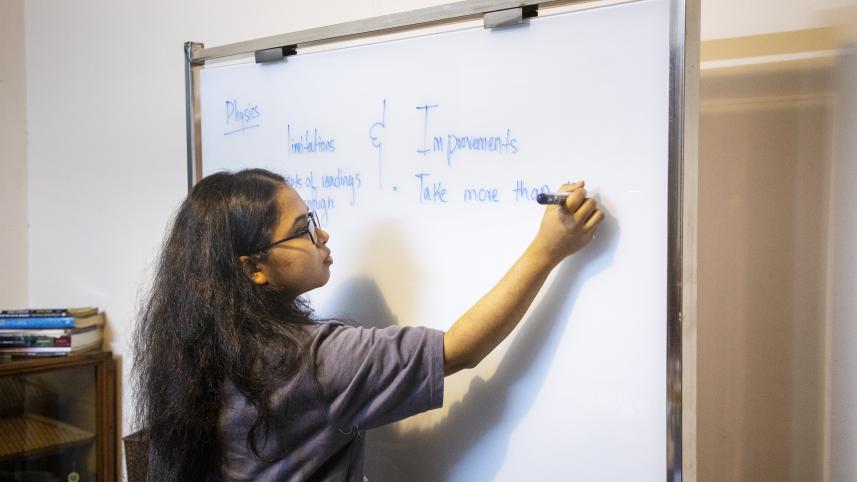 Physics
limitations & Improvements
of readings . Take more than